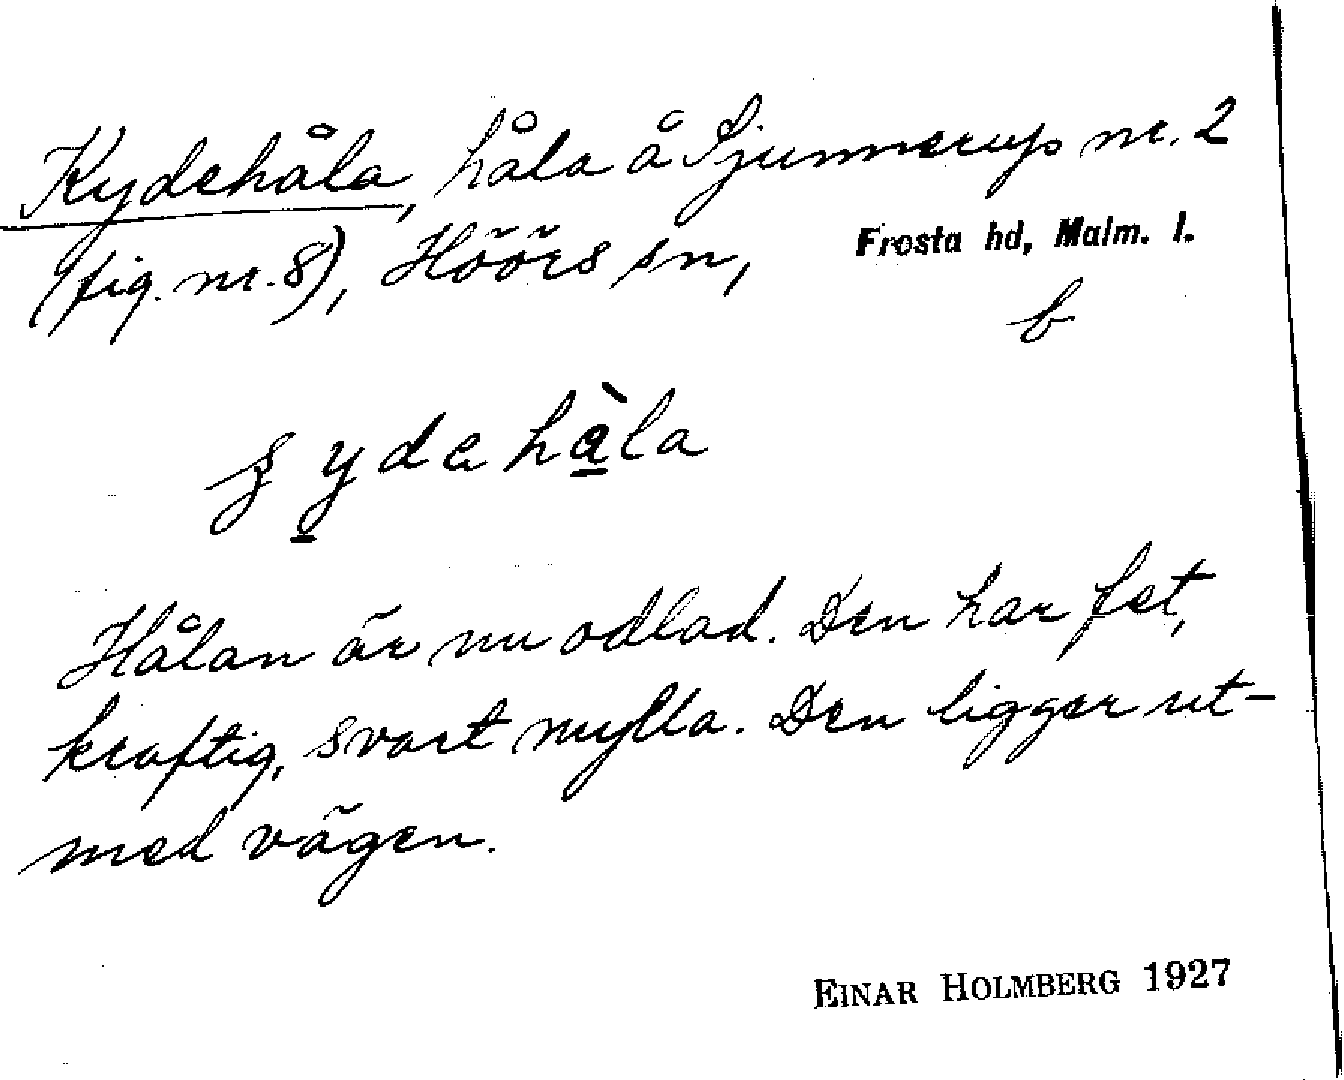 Kydehåla, håla å Sjunnerup nr. 2
(fig. nr. 8), Höörs sn, Frosta hd, Malm. l.
b
ydahàla
Hålan är nu odlad. Den har fet,
kraftig, svart mylla. Den ligger ut-
med vägen.
EINAR HOLMBERG 1927